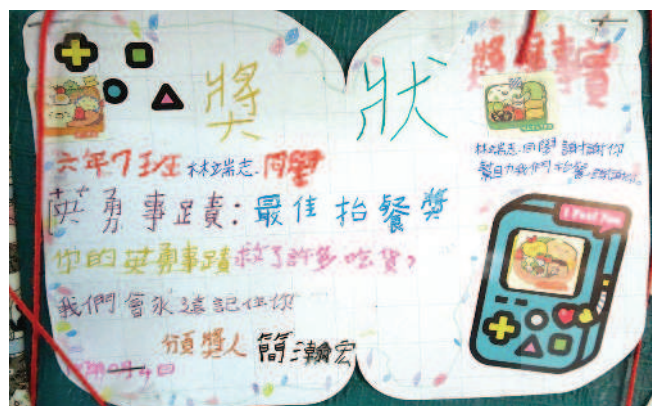 獎狀
六年7班 林端志 同學
英勇事蹟：最佳抬餐獎
你的英勇事蹟救了許多吃貨，
我們會永遠記住你
頒獎人 簡瀚宏
4日
林端志同學 謝謝你
幫助我們抬餐 謝謝你。
I Feel You